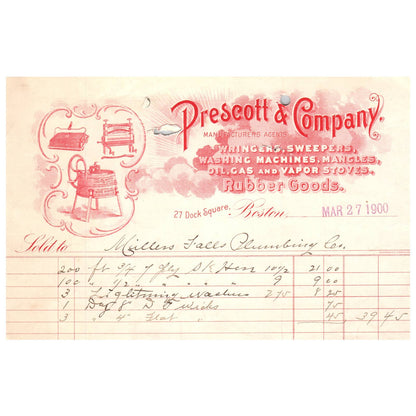 Prescott & Company.
MANUFACTURERS AGENTS
WRINGERS, SWEEPERS,
WASHING MACHINES, MANGLES,
OIL, GAS AND VAPOR STOVES.
Rubber Goods.
27 Dock Square, Boston, MAR 27 1900
Sold to Millers Falls Plumbing Co.
200 ft 3/4 7 Ply Hose 10 1/2 21 00
100 " 1/2 " " " " 9 9 00
3 Lightning Washers 2 75 8 25
1 Doz 8 D F wicks 75
3 " 4 Flat " 45 39 45